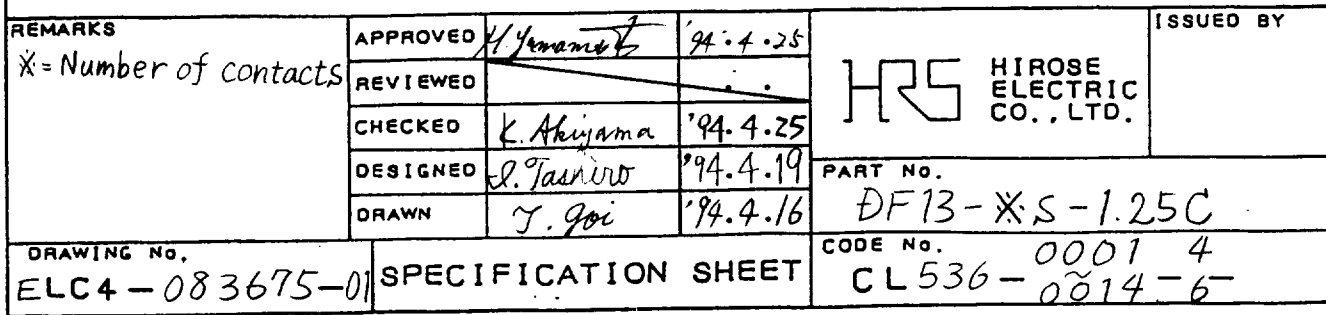 REMARKS
※=Number of contacts
APPROVED H. Yamamoto '94.4.25
REVIEWED . .
CHECKED K. Akiyama '94.4.25
DESIGNED I. Tashiro '94.4.19
DRAWN T. Goi '94.4.16
HRS HIROSE
ELECTRIC
CO.,LTD.
ISSUED BY
PART No.
DF13-※S-1.25C
DRAWING No.
ELC4-083675-01
SPECIFICATION SHEET
CODE No.
CL536-
0001 4
~
0014-6-